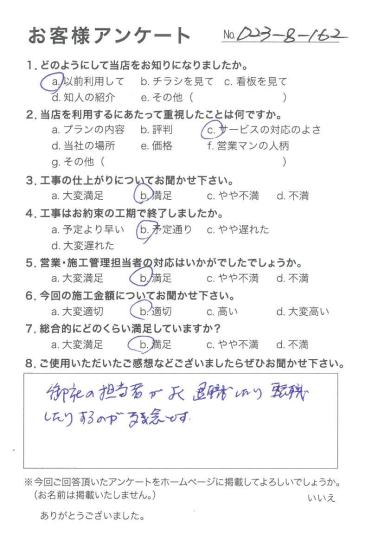 お客様アンケート No. 023-8-162
1. どのようにして当店をお知りになりましたか。
a. 以前利用して b. チラシを見て c. 看板を見て
d. 知人の紹介 e. その他（ ）
2. 当店を利用するにあたって重視したことは何ですか。
a. プランの内容 b. 評判 c. サービスの対応のよさ
d. 当社の場所 e. 価格 f. 営業マンの人柄
g. その他（ ）
3. 工事の仕上がりについてお聞かせ下さい。
a. 大変満足 b. 満足 c. やや不満 d. 不満
4. 工事はお約束の工期で終了しましたか。
a. 予定より早い b. 予定通り c. やや遅れた
d. 大変遅れた
5. 営業・施工管理担当者の対応はいかがでしたでしょうか。
a. 大変満足 b. 満足 c. やや不満 d. 不満
6. 今回の施工金額についてお聞かせ下さい。
a. 大変適切 b. 適切 c. 高い d. 大変高い
7. 総合的にどのくらい満足していますか？
a. 大変満足 b. 満足 c. やや不満 d. 不満
8. ご使用いただいたご感想などございましたらぜひお聞かせ下さい。
御社の担当者がよく退職したり転職
したりするのが残念です。
※今回ご回答頂いたアンケートをホームページに掲載してよろしいでしょうか。
（お名前は掲載いたしません。） いいえ
ありがとうございました。